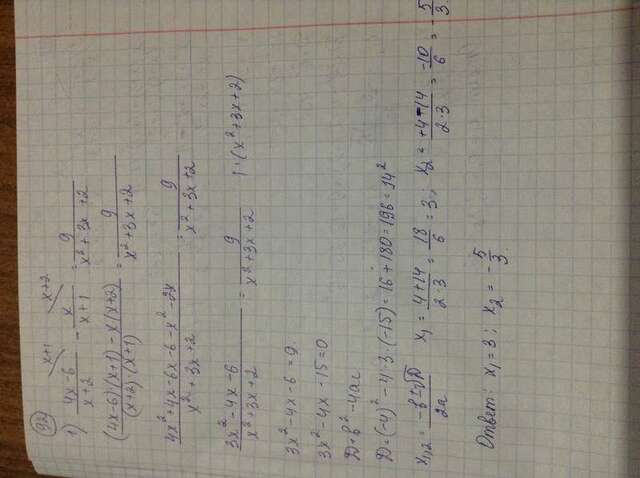 92
1) (4x-6)/(x+2) ^(x+1) - x/(x+1) ^(x+2) = 9/(x²+3x+2)
((4x-6)(x+1)-x(x+2))/((x+2)(x+1)) = 9/(x²+3x+2)
(4x²+4x-6x-6-x²-2x)/(x²+3x+2) = 9/(x²+3x+2)
(3x²-4x-6)/(x²+3x+2) = 9/(x²+3x+2) |·(x²+3x+2)
3x²-4x-6=9.
3x²-4x-15=0
D=b²-4ac
D=(-4)²-4·3·(-15)=16+180=196=14²
x₁,₂=(-b±√D)/2a x₁=(4+14)/(2·3)=18/6=3; x₂=(+4-14)/(2·3)=-10/6=-5/3
Ответ: x₁=3; x₂=-5/3.